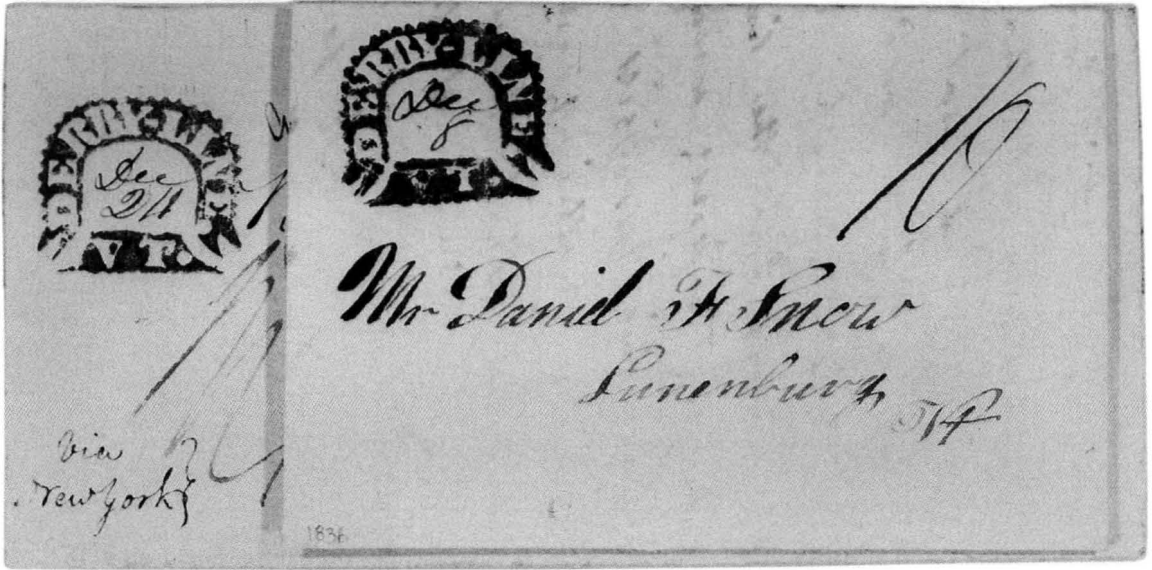 DERRY-LINE
Dec
24
VT.
Via
New York
DERRY-LINE
Dec
8
VT.
10
Mr Daniel F Snow
Lunenburg
Vt
1836